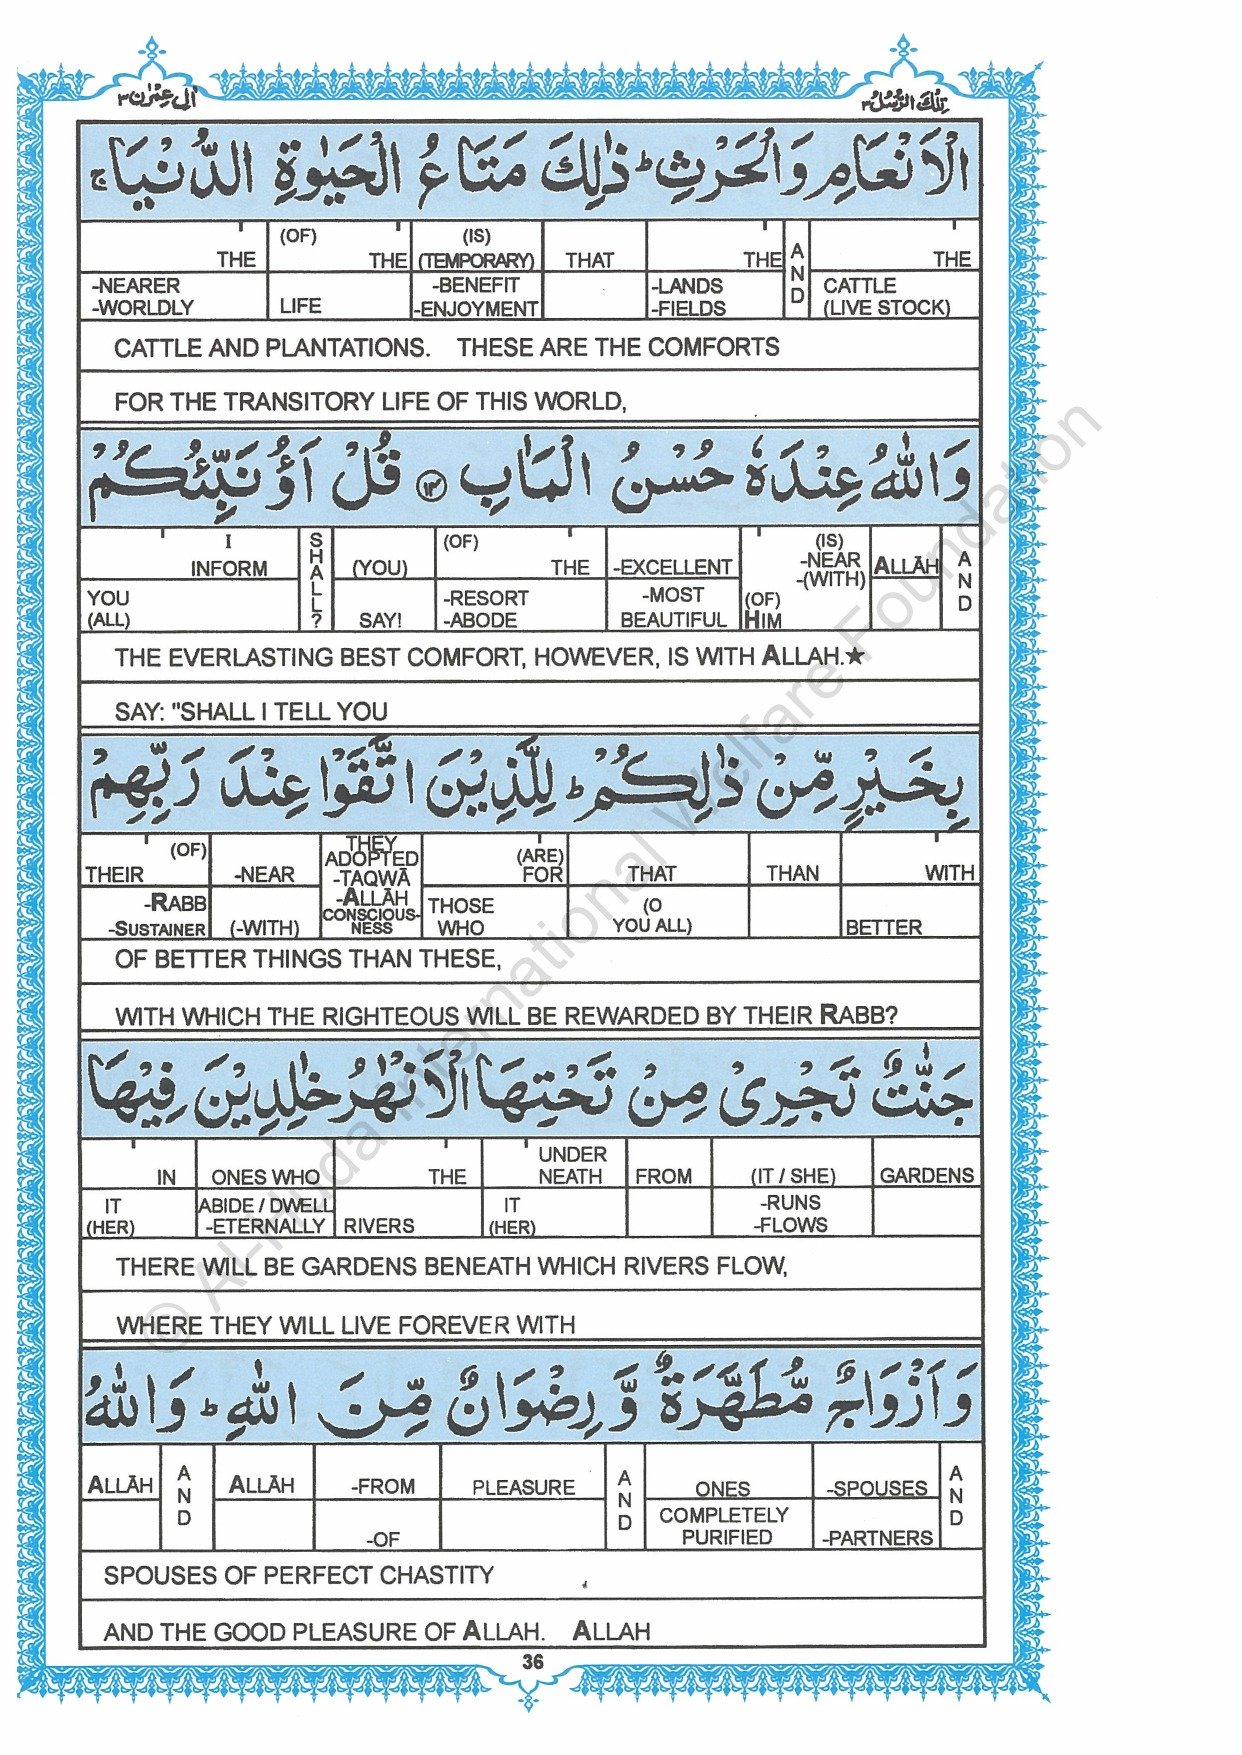 اٰلِ عِمْرٰن ٣
تِلْكَ الرُّسُلُ ٣
الْاَنْعَامِ وَالْحَرْثِ ؕ ذٰلِكَ مَتَاعُ الْحَيٰوةِ الدُّنْيَا ۚ
THE (OF) THE (IS) (TEMPORARY) THAT THE AND THE
-NEARER -WORLDLY LIFE -BENEFIT -ENJOYMENT -LANDS -FIELDS CATTLE (LIVE STOCK)
CATTLE AND PLANTATIONS. THESE ARE THE COMFORTS
FOR THE TRANSITORY LIFE OF THIS WORLD,
وَاللّٰهُ عِنْدَهٗ حُسْنُ الْمَاٰبِ ﴿۱۴﴾ قُلْ اَؤُنَبِّئُكُمْ
I INFORM SHALL? (YOU) (OF) THE -EXCELLENT (IS) -NEAR -(WITH) ALLĀH AND
YOU (ALL) SAY! -RESORT -ABODE -MOST BEAUTIFUL (OF) HIM
THE EVERLASTING BEST COMFORT, HOWEVER, IS WITH ALLAH.★
SAY: "SHALL I TELL YOU
بِخَيْرٍ مِّنْ ذٰلِكُمْ ؕ لِلَّذِيْنَ اتَّقَوْا عِنْدَ رَبِّهِمْ
(OF) THEIR -NEAR THEY ADOPTED -TAQWĀ -ALLĀH CONSCIOUS-NESS (ARE) FOR THAT THAN WITH
-RABB -SUSTAINER (-WITH) THOSE WHO (O YOU ALL) BETTER
OF BETTER THINGS THAN THESE,
WITH WHICH THE RIGHTEOUS WILL BE REWARDED BY THEIR RABB?
جَنّٰتٌ تَجْرِيْ مِنْ تَحْتِهَا الْاَنْهٰرُ خٰلِدِيْنَ فِيْهَا
IN ONES WHO THE UNDER NEATH FROM (IT / SHE) GARDENS
IT (HER) ABIDE / DWELL -ETERNALLY RIVERS IT (HER) -RUNS -FLOWS
THERE WILL BE GARDENS BENEATH WHICH RIVERS FLOW,
WHERE THEY WILL LIVE FOREVER WITH
وَاَزْوَاجٌ مُّطَهَّرَةٌ وَّرِضْوَانٌ مِّنَ اللّٰهِ ؕ وَاللّٰهُ
ALLĀH AND ALLĀH -FROM PLEASURE AND ONES -SPOUSES AND
-OF COMPLETELY PURIFIED -PARTNERS
SPOUSES OF PERFECT CHASTITY
AND THE GOOD PLEASURE OF ALLAH. ALLAH
36
© Al-Huda International Welfare Foundation